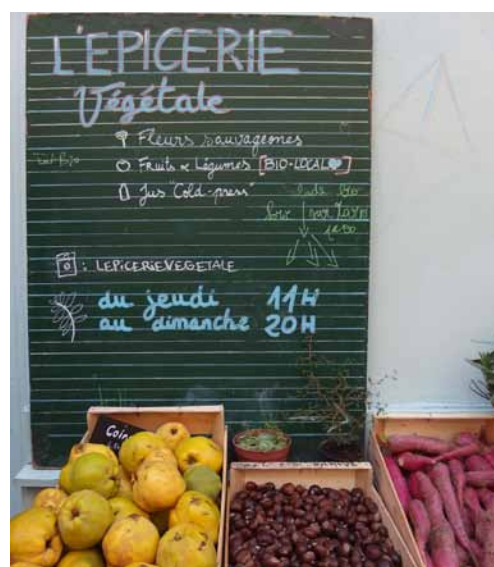 L'EPICERIE
Végétale
Fleurs sauvageonnes
Fruits & Légumes [BIO-LOCAL]
Jus "Cold-press"
: LEPICERIEVEGETALE
du jeudi 11H
au dimanche 20H
Coin